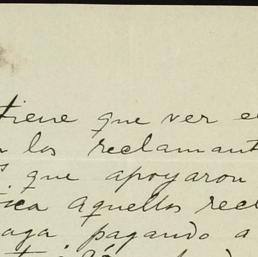 tiene que ver e
los reclamant
que apoyaron
ica aquellos rec
aga, pagando a